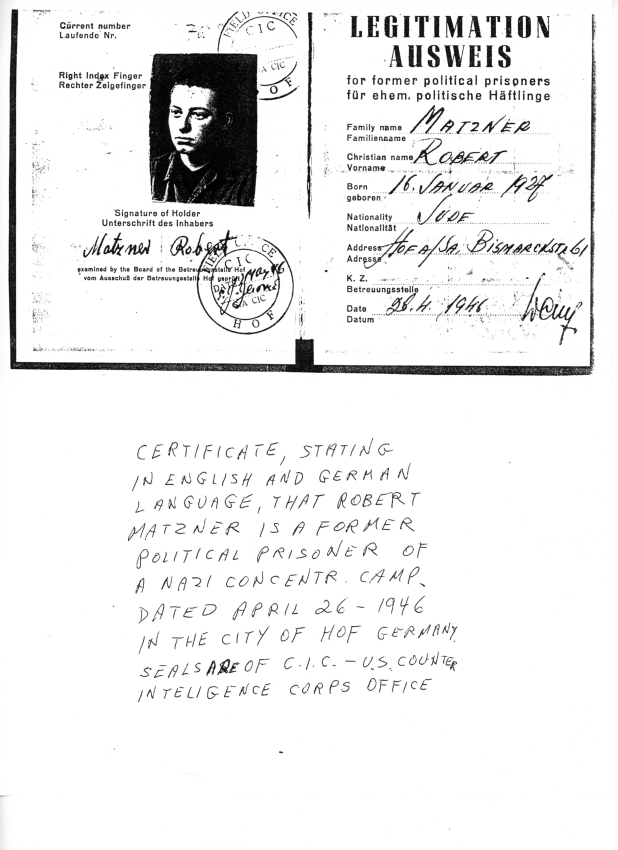 Current number
Laufende Nr.
FIELD OFFICE
CIC
CIC
HOF
Right Index Finger
Rechter Zeigefinger
Signature of Holder
Unterschrift des Inhabers
Matzner Robert
examined by the Board of the Betreuungsstelle Hof
vom Ausschuß der Betreuungsstelle Hof geprüft
FIELD OFFICE
CIC
CIC
HOF
LEGITIMATION
AUSWEIS
for former political prisoners
für ehem. politische Häftlinge
Family name MATZNER
Familienname
Christian name ROBERT
Vorname
Born 16. JANUAR 1927
geboren
Nationality JUDE
Nationalität
Address HOF A/SA, BISMARCKSTR 61
Adresse
K. Z.
Betreuungsstelle
Date 26.4. 1946
Datum
CERTIFICATE, STATING
IN ENGLISH AND GERMAN
LANGUAGE, THAT ROBERT
MATZNER IS A FORMER
POLITICAL PRISONER OF
A NAZI CONCENTR. CAMP.
DATED APRIL 26 - 1946
IN THE CITY OF HOF GERMANY.
SEALS ARE OF C.I.C. - U.S. COUNTER
INTELIGENCE CORPS OFFICE